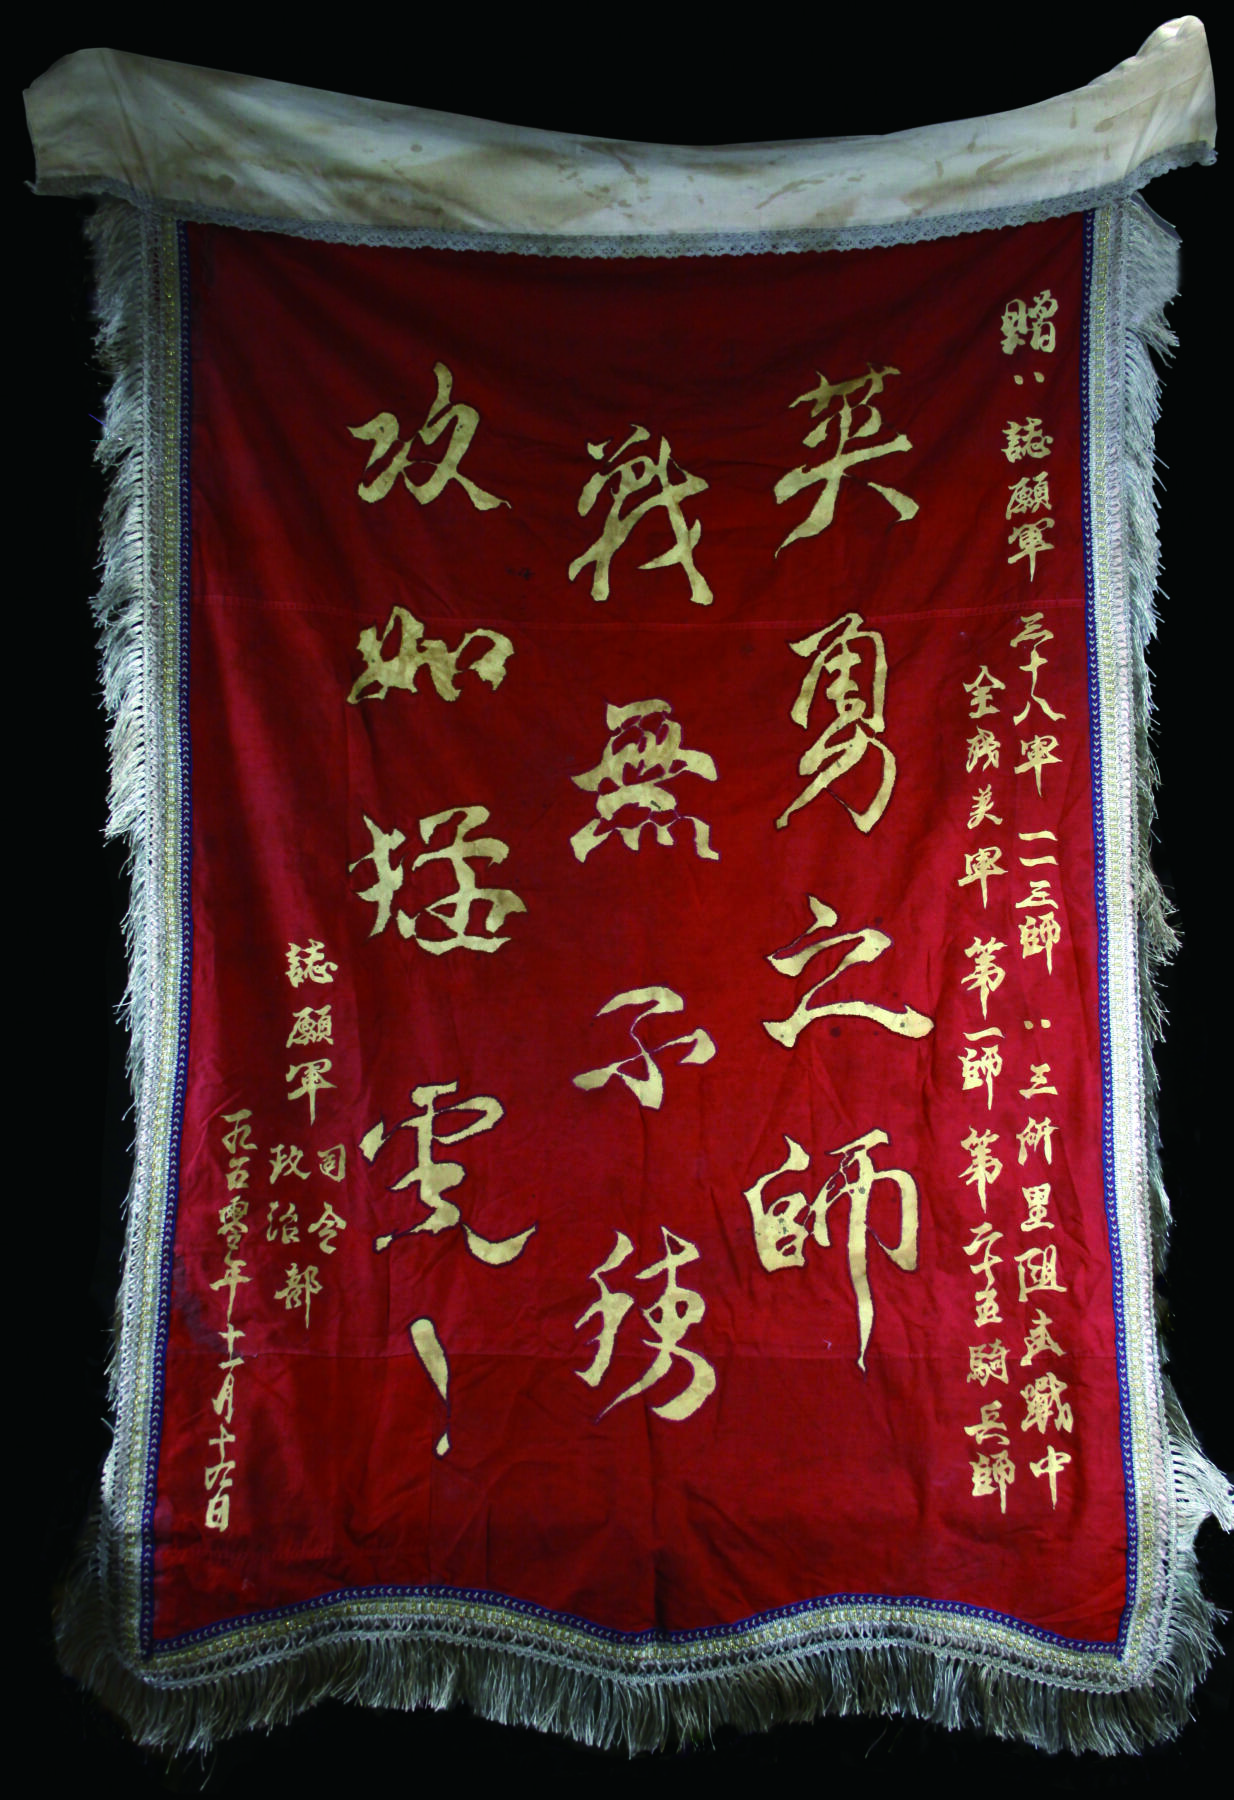 贈：誌願軍 三十八軍 一一三師：三所里阻击戰中
全残美軍 第一師 第二十五騎兵師
英勇之師
戰無不勝
攻如猛虎！
誌願軍 司令
政治部
一九五零年十一月十日